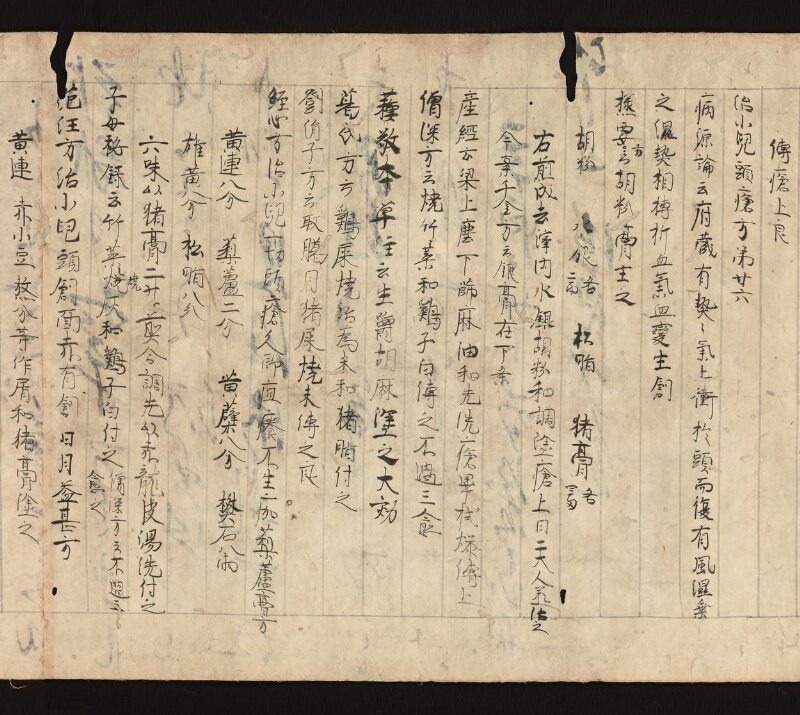 傅瘡上良
治小兒頭瘡方第廿六
病源論云府蔵有熱〻氣上衝於頭而復有風濕乗
之濕熱相搏折血氣血變生創
撫要方云胡粉膏主之
胡粉 松脂 猪膏
右煎成去滓内水銀胡粉和調塗瘡上日二大人亦治之
今案千金方云領膏在下条
産經云梁上塵下篩麻油和先洗瘡畢傅上
僧深方云燒竹葉和鷄子白傅之不過三愈
蘓敬本草注云生嚼胡麻塗之大効
葛氏方云鷄屎燒治為末和猪脂付之
劉涓子方云取臘月猪屎燒末傅之良
經心方治小兒一切頭瘡久即疽癢不生痂藜蘆膏方
黄連八分 藜蘆二分 黄蘗八分 礬石八兩
雄黄八分 松脂八分
六味以猪膏二升煎令調先以赤龍皮湯洗付之
子母秘録云竹葉燒灰和鷄子白付之 僧深方云不過三愈之
范汪方治小兒頭創面亦有創日月益甚方
黄連 赤小豆熬分等作屑和猪膏塗之